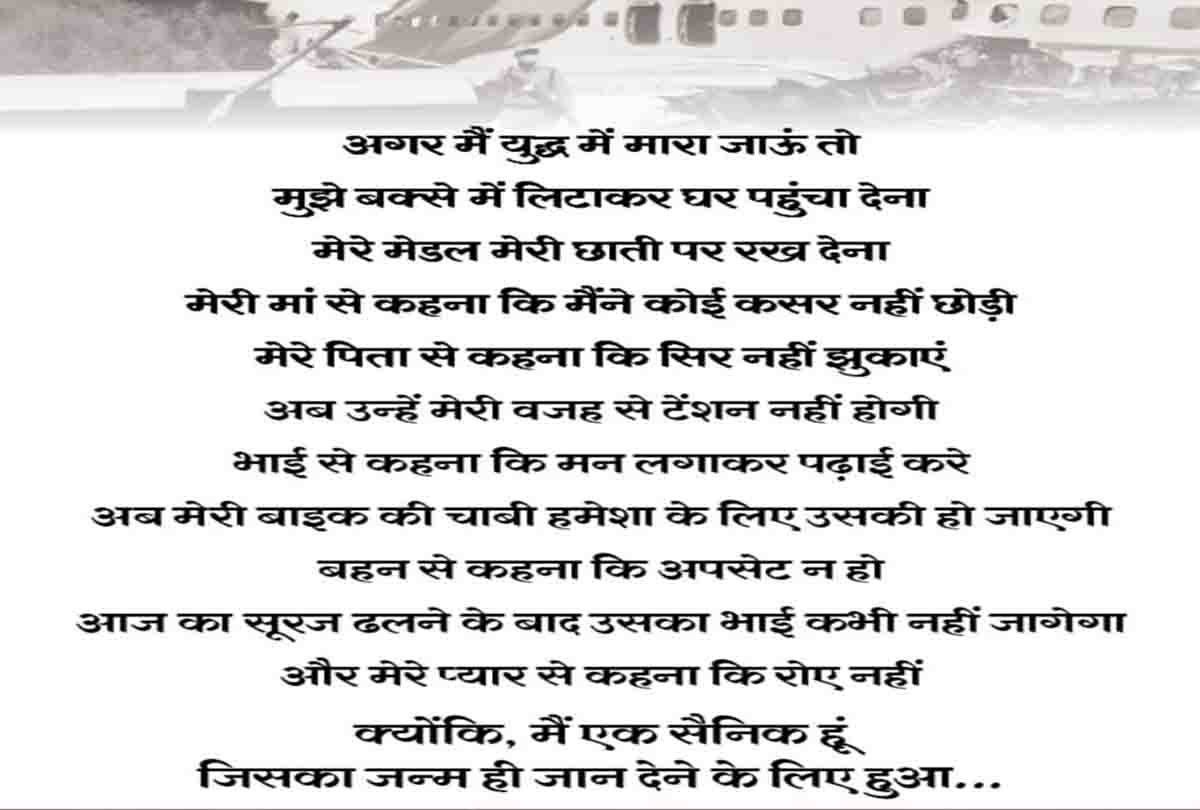 अगर मैं युद्ध में मारा जाऊं तो
मुझे बक्से में लिटाकर घर पहुंचा देना
मेरे मेडल मेरी छाती पर रख देना
मेरी मां से कहना कि मैंने कोई कसर नहीं छोड़ी
मेरे पिता से कहना कि सिर नहीं झुकाएं
अब उन्हें मेरी वजह से टेंशन नहीं होगी
भाई से कहना कि मन लगाकर पढ़ाई करे
अब मेरी बाइक की चाबी हमेशा के लिए उसकी हो जाएगी
बहन से कहना कि अपसेट न हो
आज का सूरज ढलने के बाद उसका भाई कभी नहीं जागेगा
और मेरे प्यार से कहना कि रोए नहीं
क्योंकि, मैं एक सैनिक हूं
जिसका जन्म ही जान देने के लिए हुआ...